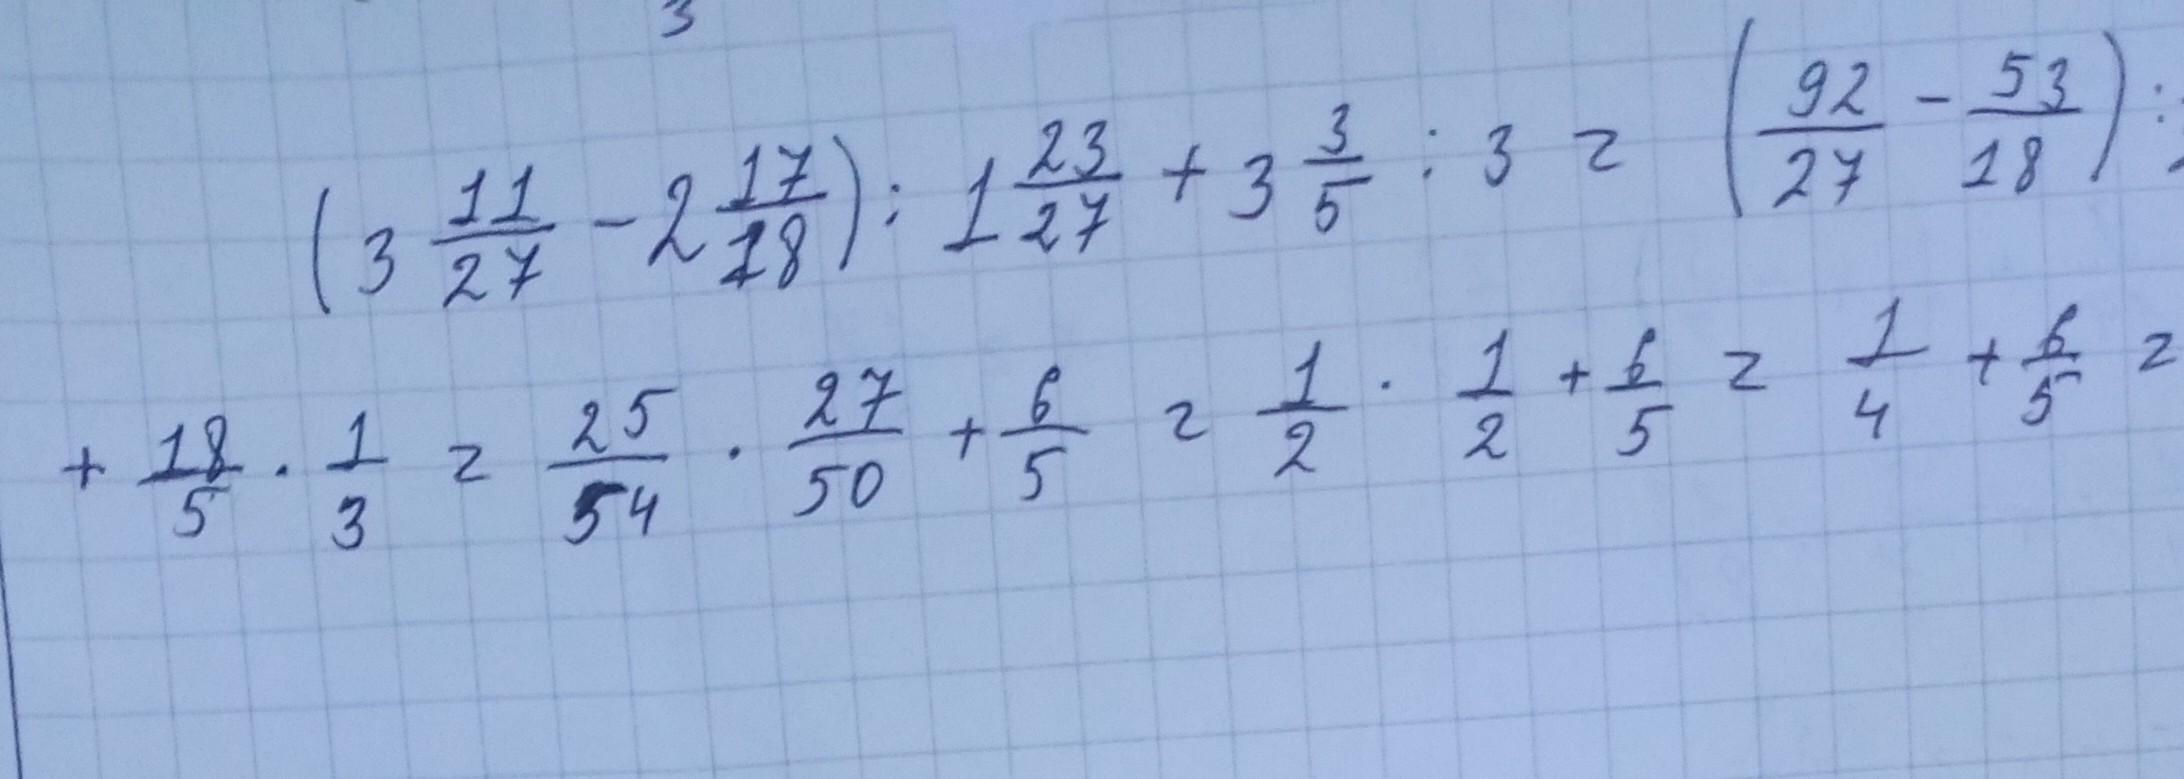 3
(3 11/27 - 2 17/18) : 1 23/27 + 3 3/5 : 3 = (92/27 - 53/18) :
+ 18/5 · 1/3 = 25/54 · 27/50 + 6/5 = 1/2 · 1/2 + 6/5 = 1/4 + 6/5 =